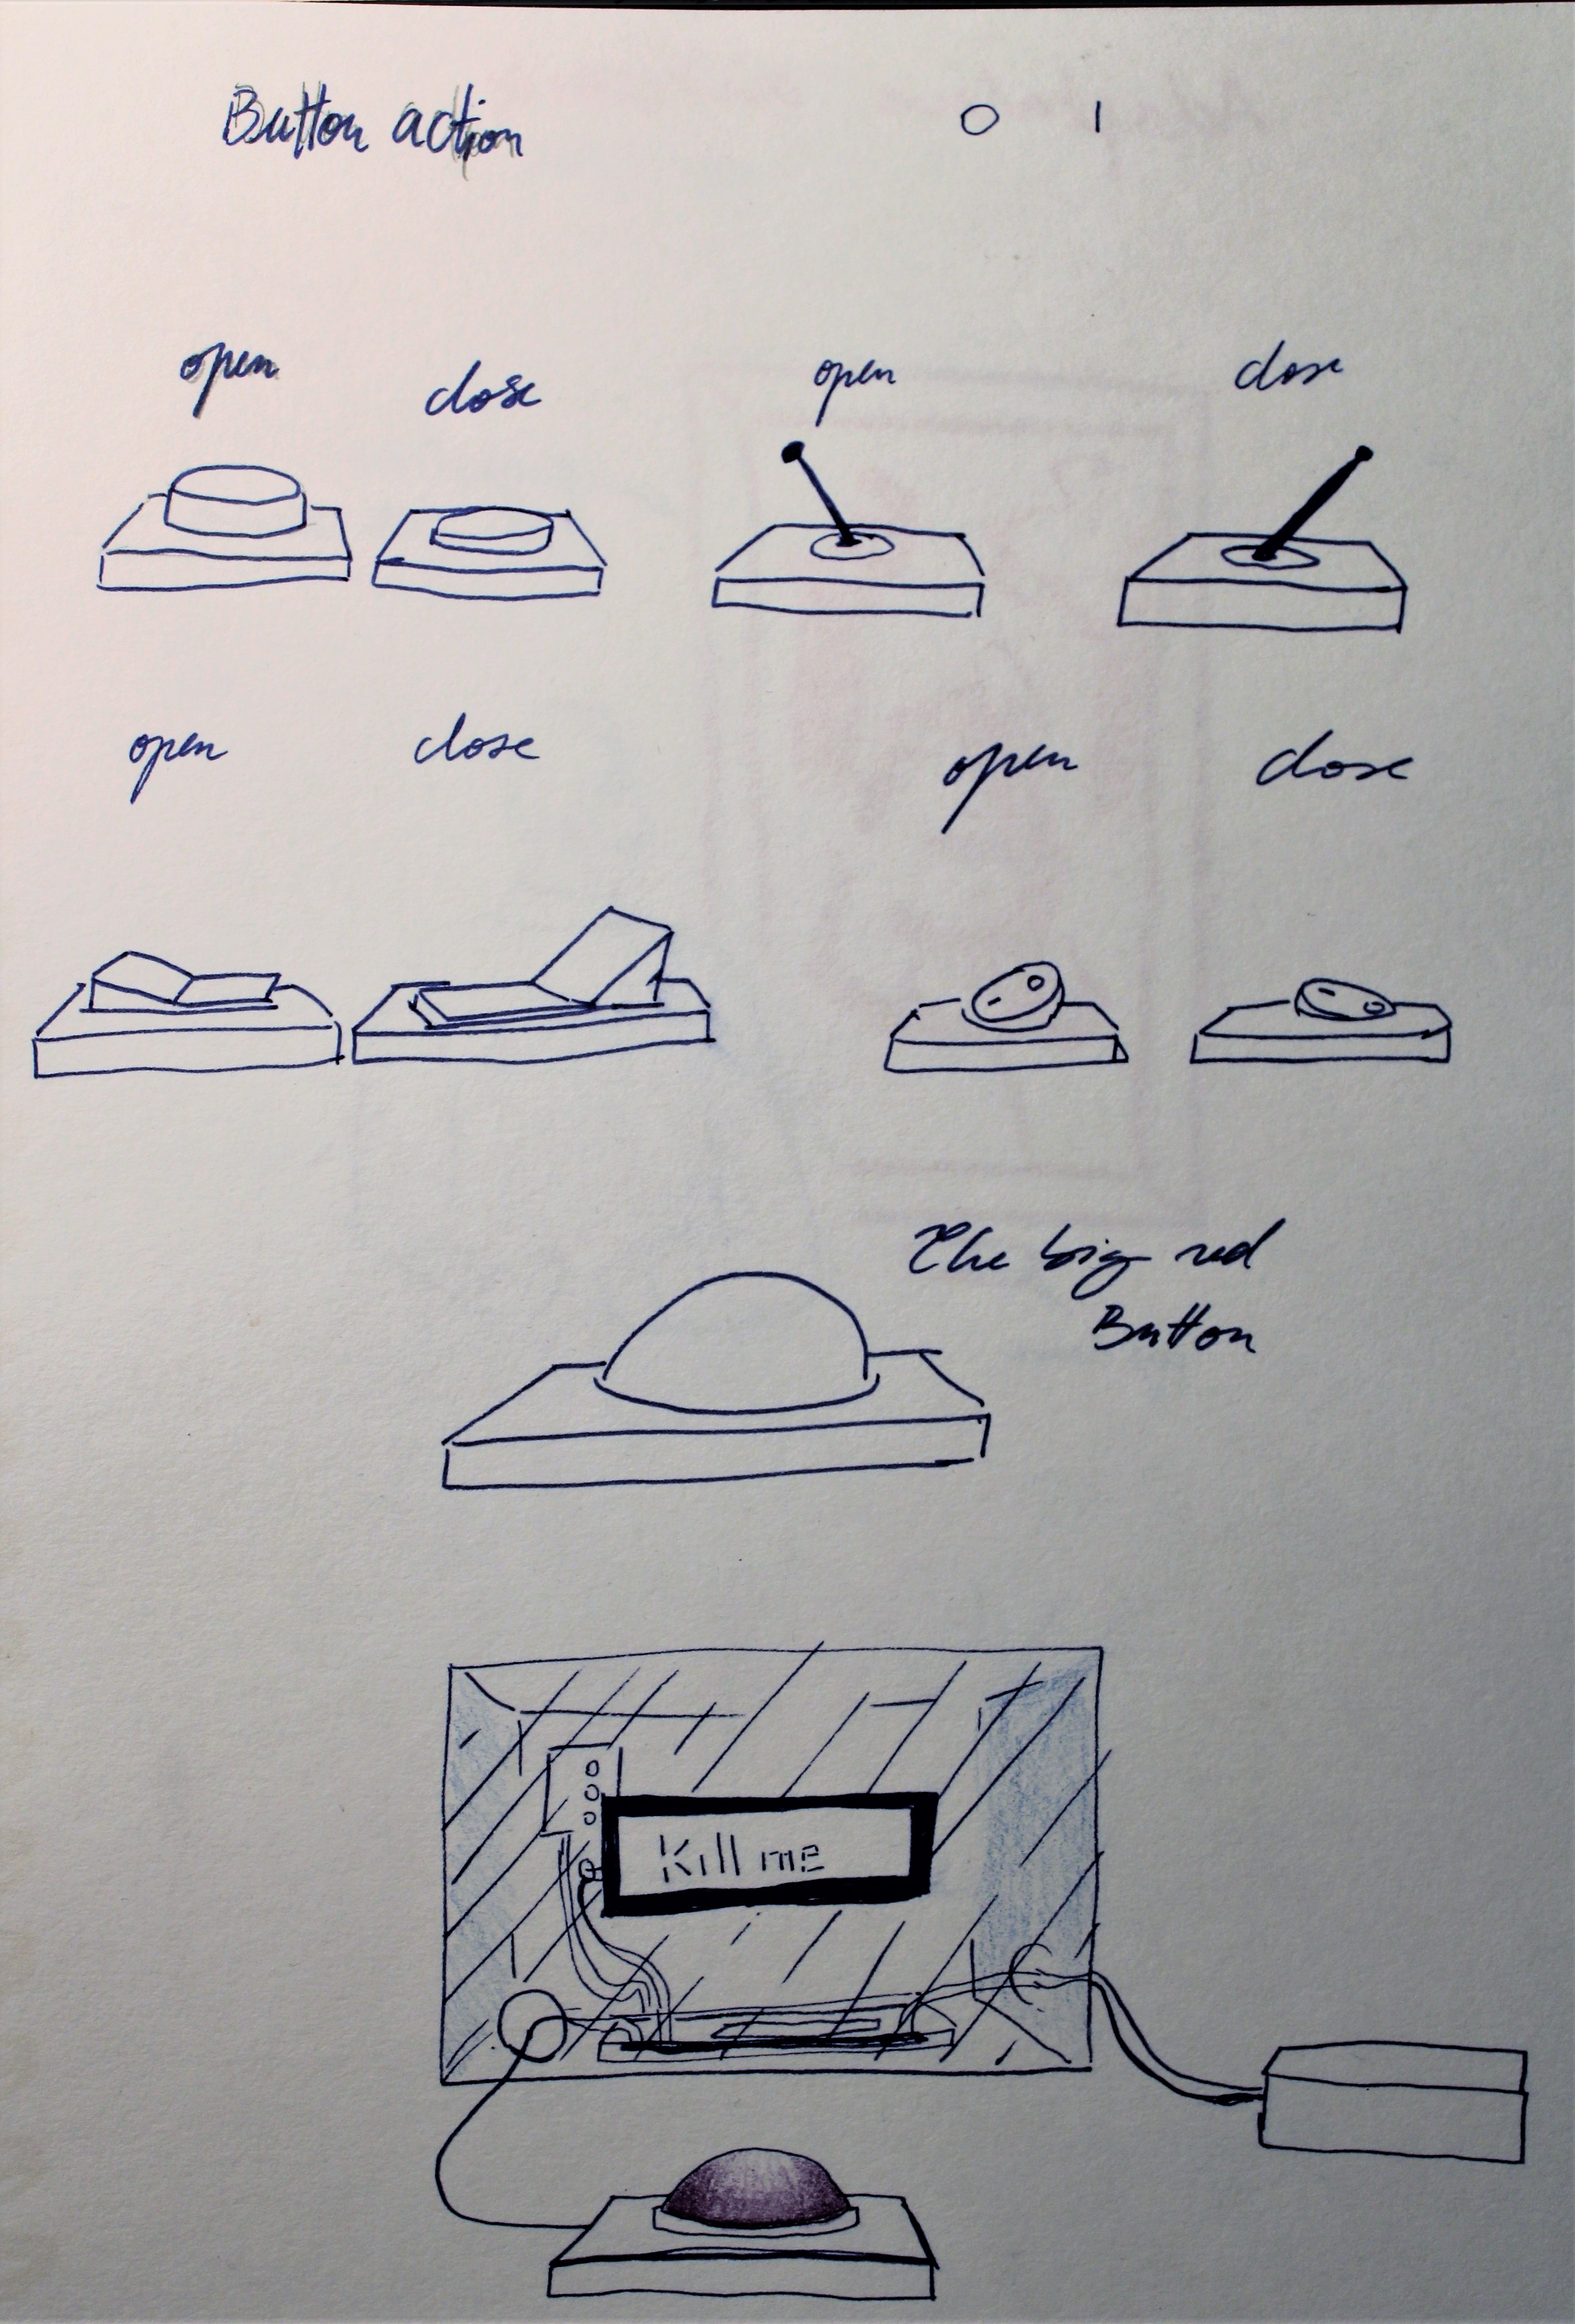 Button action
O I
open close open close
open close open close
The big red
Button
Kill me